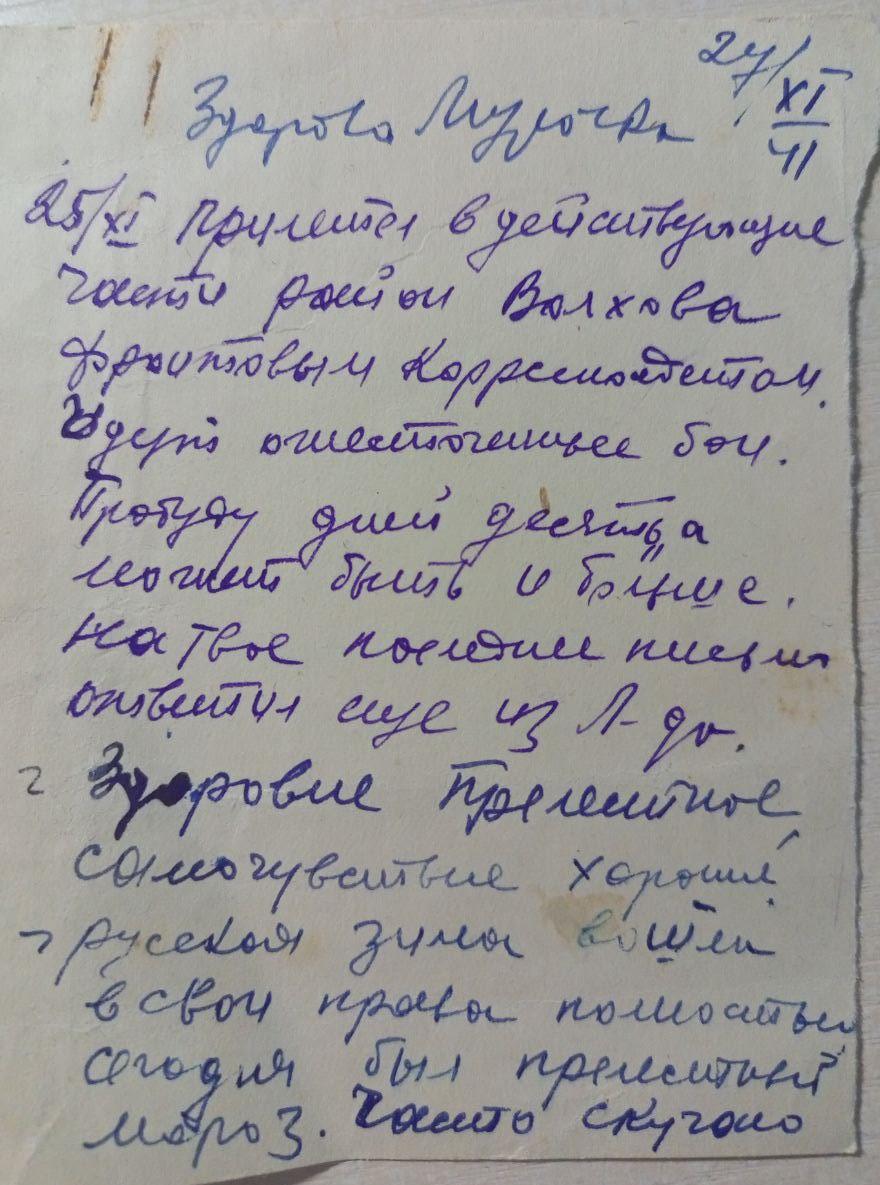 27/XI 41
Здорово Мурочка
25/XI прилетел в действующие
части район Волхова
фронтовым корреспондентом.
Идут ожесточенные бои.
Пробуду дней десять, а
может быть и больше.
На твое последнее письмо
ответил еще из Л-да.
Здоровие прелестное
самочувствие хорошее
русская зима вошла
в свои права полностью
сегодня был прелестный
мороз. Часто скучаю